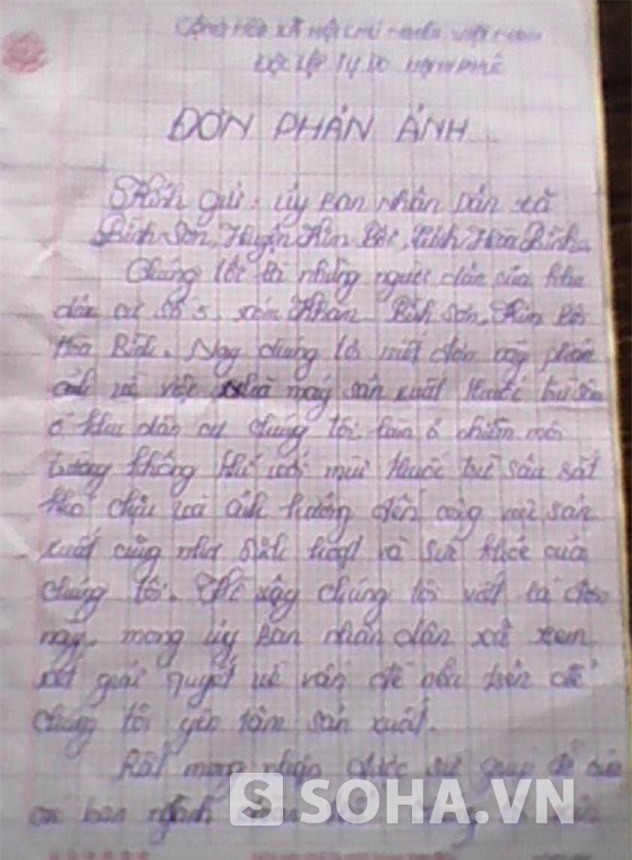 CỘNG HÒA XÃ HỘI CHỦ NGHĨA VIỆT NAM
ĐỘC LẬP TỰ DO HẠNH PHÚC
ĐƠN PHẢN ÁNH
Kính gửi: Ủy ban nhân dân xã
Bình Sơn, Huyện Kim Bôi, Tỉnh Hòa Bình
Chúng tôi là những người dân của khu
dân cư số 5 xóm Khoan Bình Sơn, Kim Bôi
Hòa Bình. Nay chúng tôi viết đơn này phản
ánh về việc nhà máy sản xuất thuốc trừ sâu
ở khu dân cư chúng tôi làm ô nhiễm môi
trường không khí với mùi thuốc trừ sâu rất
khó chịu và ảnh hưởng đến công việc sản
xuất cũng như sinh hoạt và sức khỏe của
chúng tôi. Vì vậy chúng tôi viết lá đơn
này mong ủy ban nhân dân xã xem
xét giải quyết về vấn đề nêu trên để
chúng tôi yên tâm sản xuất.
Rất mong nhận được sự giúp đỡ của
các ban ngành
S SOHA.VN